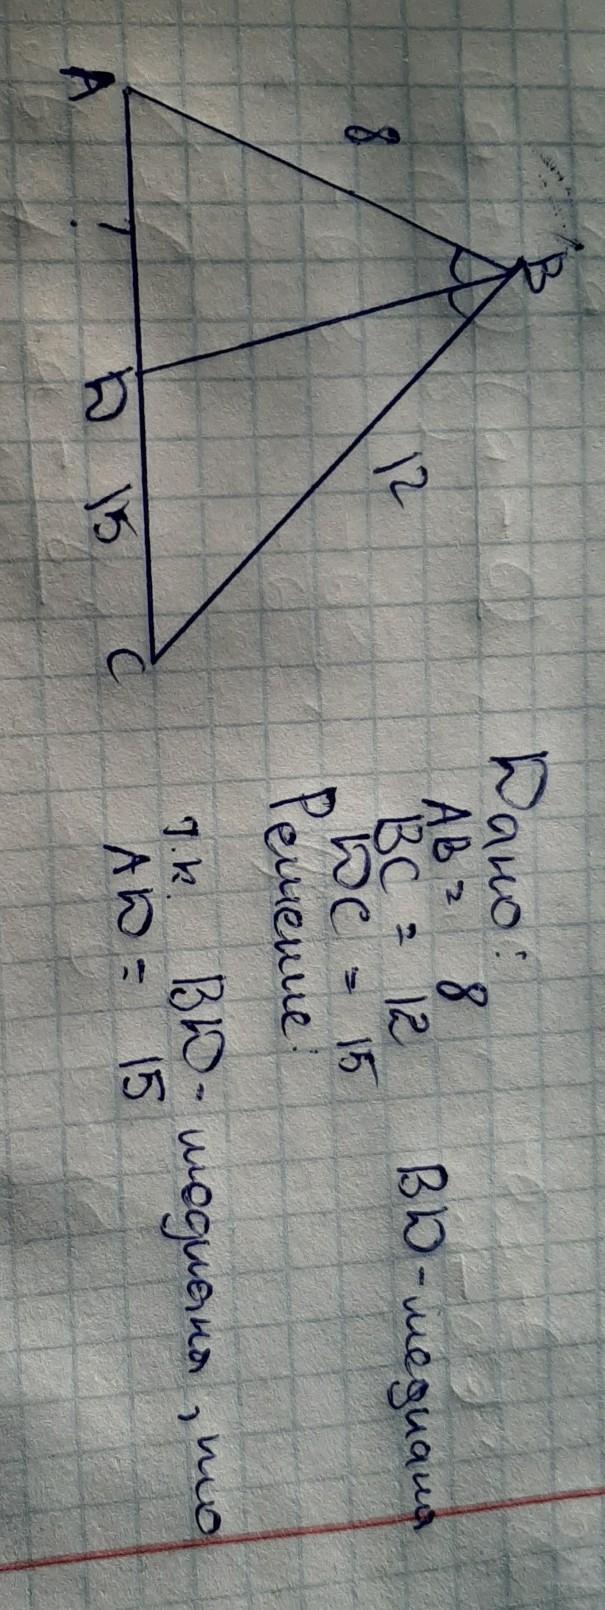 B
8
12
A
?
D
15
C
Дано:
AB = 8
BC = 12
BD - медиана
DC = 15
Решение:
т.к. BD - медиана, то
AD = 15